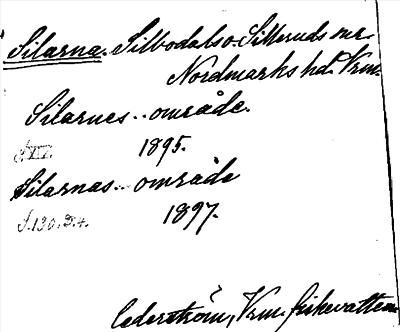 Silarna. Silbodals o. Silleruds snr.
Nordmarks hd. Vrm.
Silarnes .. område.
S. XIV. 1895.
Silarnas .. område
S. 130. D. 4. 1897.
Cederström, Vrm. fiskevatten